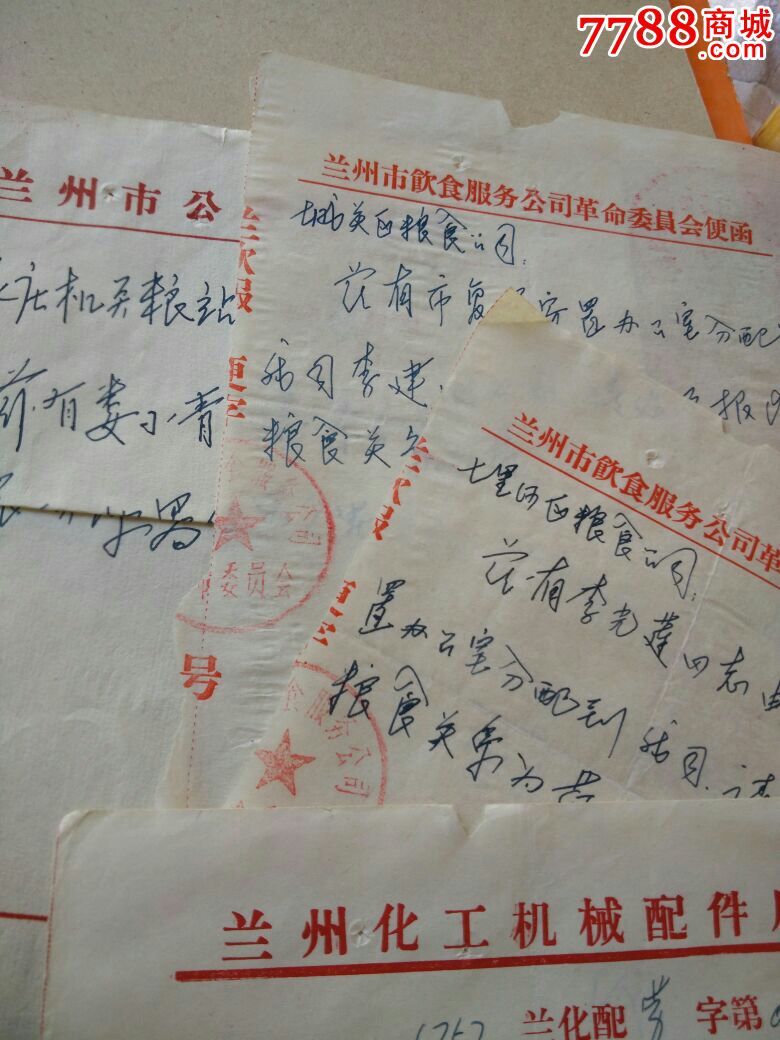 7788商城
.com
兰州市公
庄机关粮站
兹有娄小青
兰州市飲食服务公司革命委員会便函
城关区粮食公司:
兹有市复
安置办公室分配
我司李建
粮食关
兰饮服
便字
号
服务公司
委员会
兰州市飲食服务公司革
七里河区粮食公司:
兹有李光莲同志由
置办公室分配到我司。请
粮食关系为荷
食服务公司
兰州化工机械配件
兰化配 劳 字第